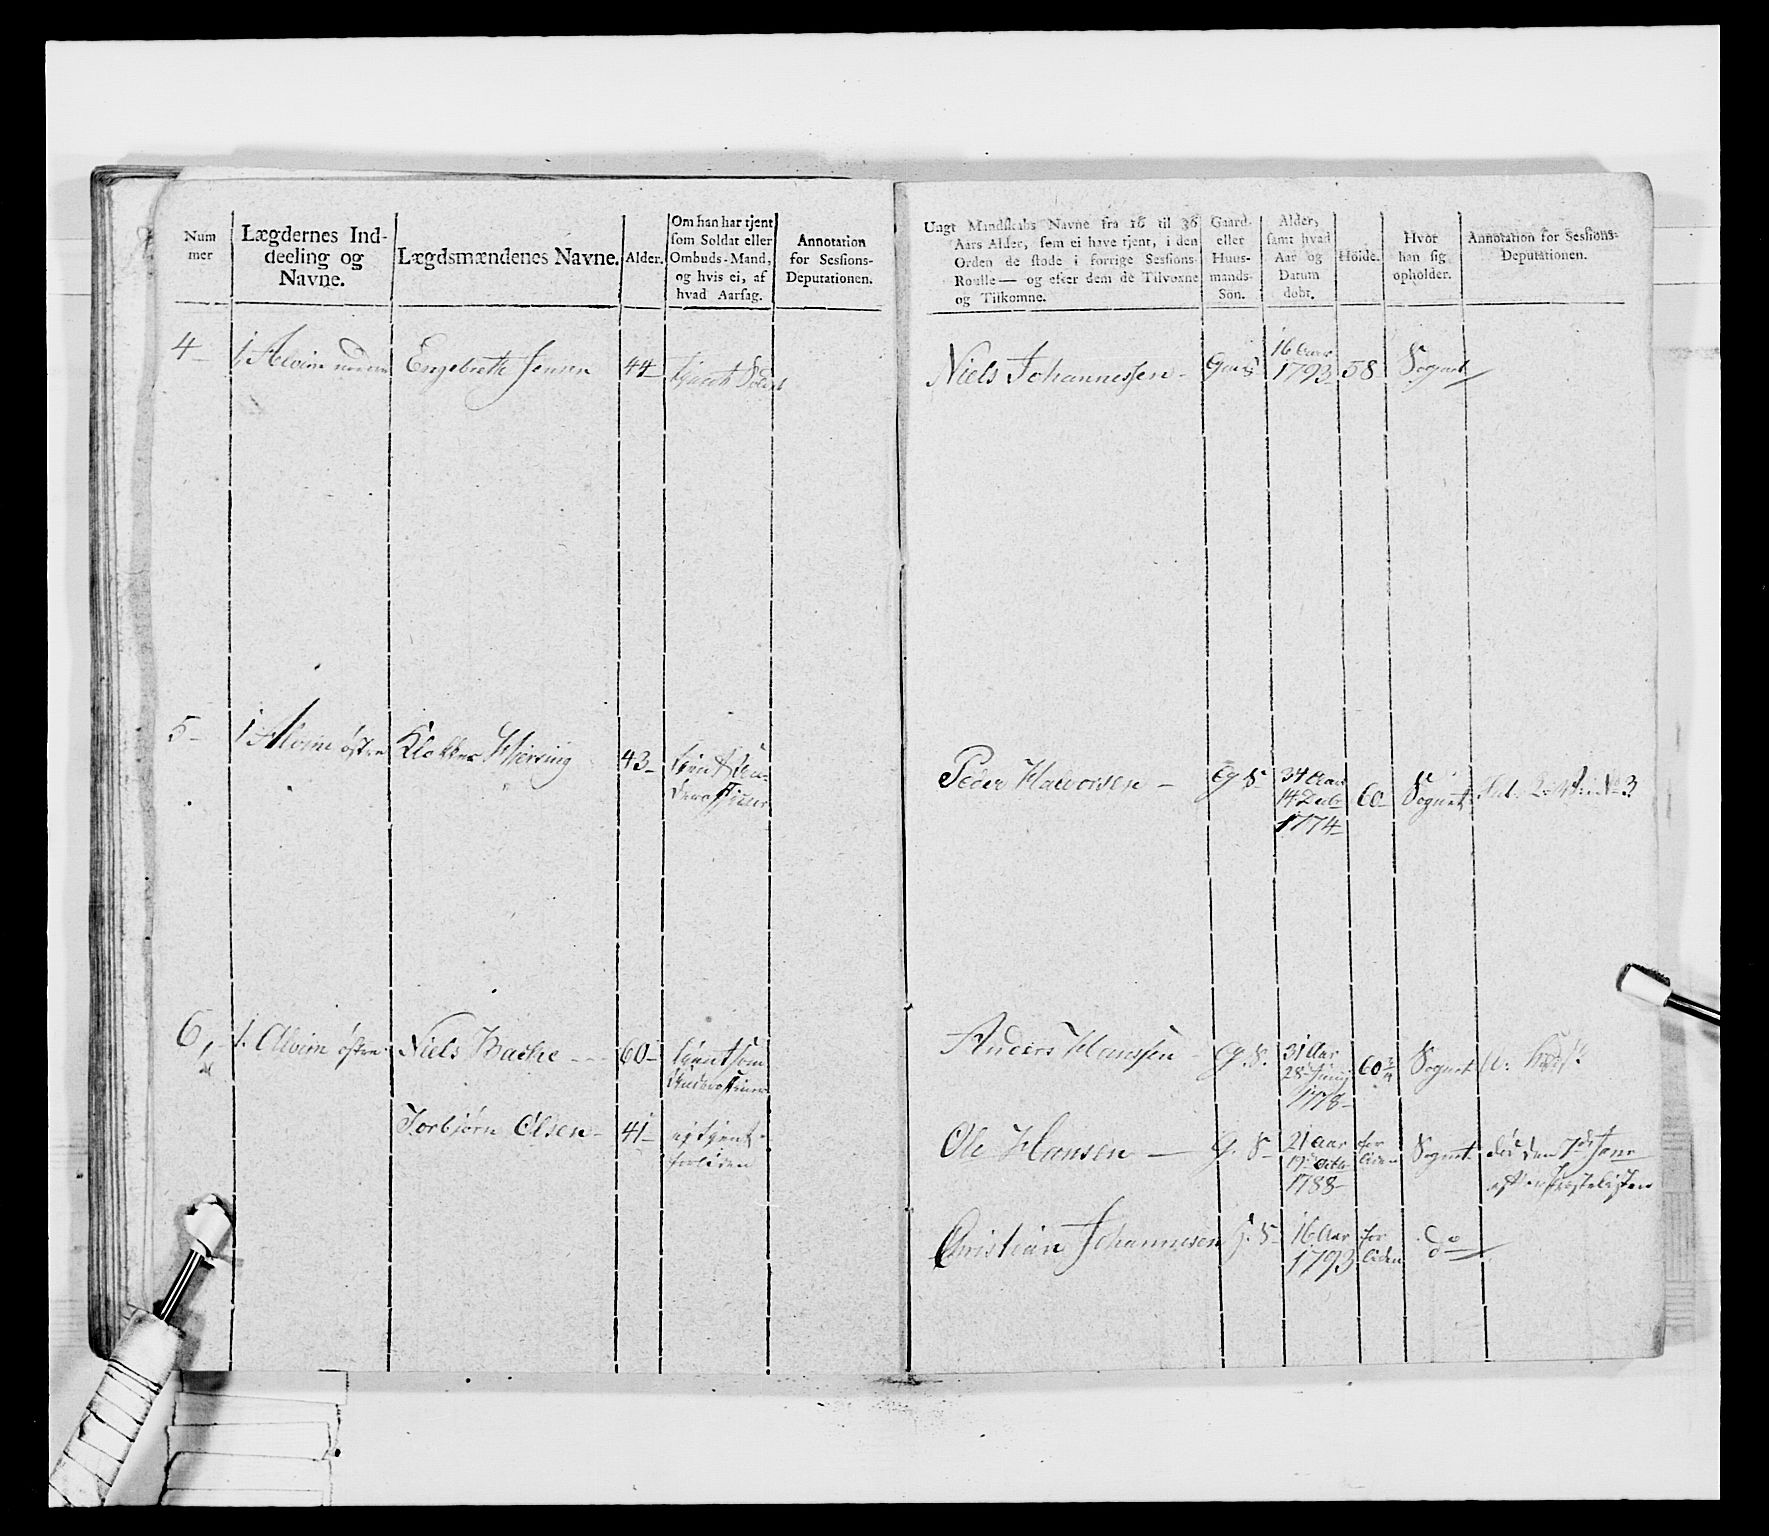 Num
mer
Lægdernes Ind-
deeling og
Navne.
Lægdsmændenes Navne.
Alder.
Om han har tjent
som Soldat eller
Ombuds-Mand,
og hvis ei, af
hvad Aarsag.
Annotation
for Sessions-
Deputationen.
4
1 Alvim
Engebreth Jensen
44
5
1 Alvim østre
Klokker
43
6
1. Alvim østre
Niels Bache
60
tjent som
Torbjørn Olsen
41
ej tjent
forliden
Ungt Mandskabs Navne fra 16 til 36
Aars Alder, som ei have tjent, i den
Orden de stode i forrige Sessions-
Roulle — og efter dem de Tilvoxne
og Tilkomne.
Gaard-
eller
Huus-
mands-
Søn.
Alder,
samt hvad
Aar og
Datum
døbt.
Höide.
Hvor
han sig
opholder.
Annotation for Sessions-
Deputationen.
Niels Johannessen
16 Aar
1793
58
Sognet
Peder Halvorsen
G S
34 Aar
14 Decbr
1774
60
Sognet
Anders Hanssen
G. S.
31 Aar
28 Junij
1778
60 3/4
Sognet
Ole Hansen
G. S
21 Aar
19 Octbr
1788
for
liden
Sognet
Christian Johannesen
G. S
16 Aar
1793
for
liden
do